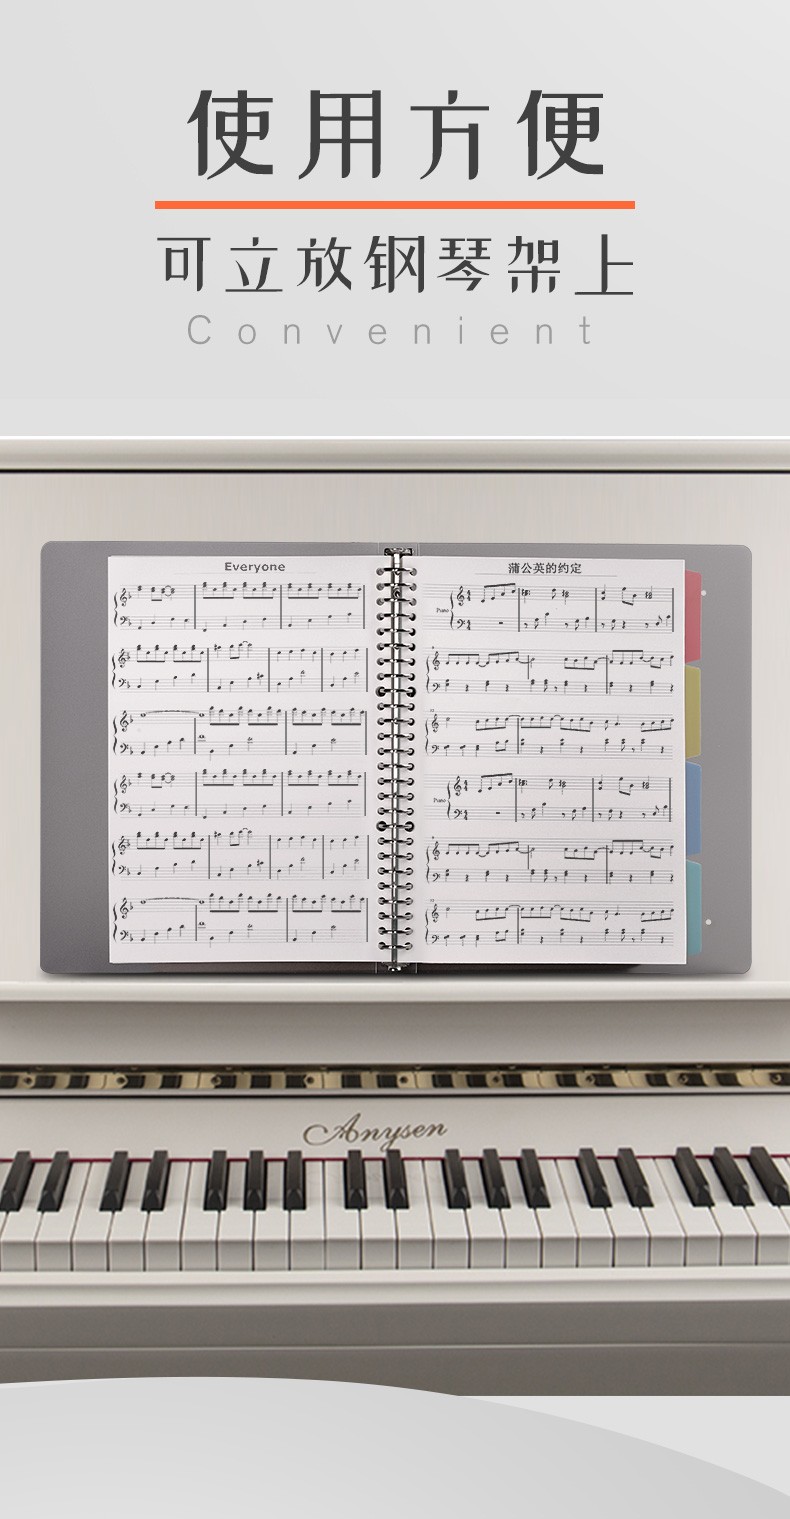 使用方便
可立放钢琴架上
Convenient
Everyone
蒲公英的约定
Piano
Piano
Anysen